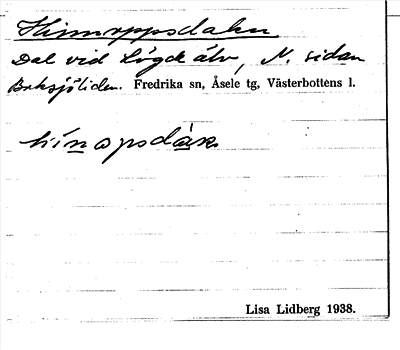 Himoppsdalen
Dal vid Lögde älv, N. sidan
Baksjöliden. Fredrika sn, Åsele tg, Västerbottens l.
Lisa Lidberg 1938.